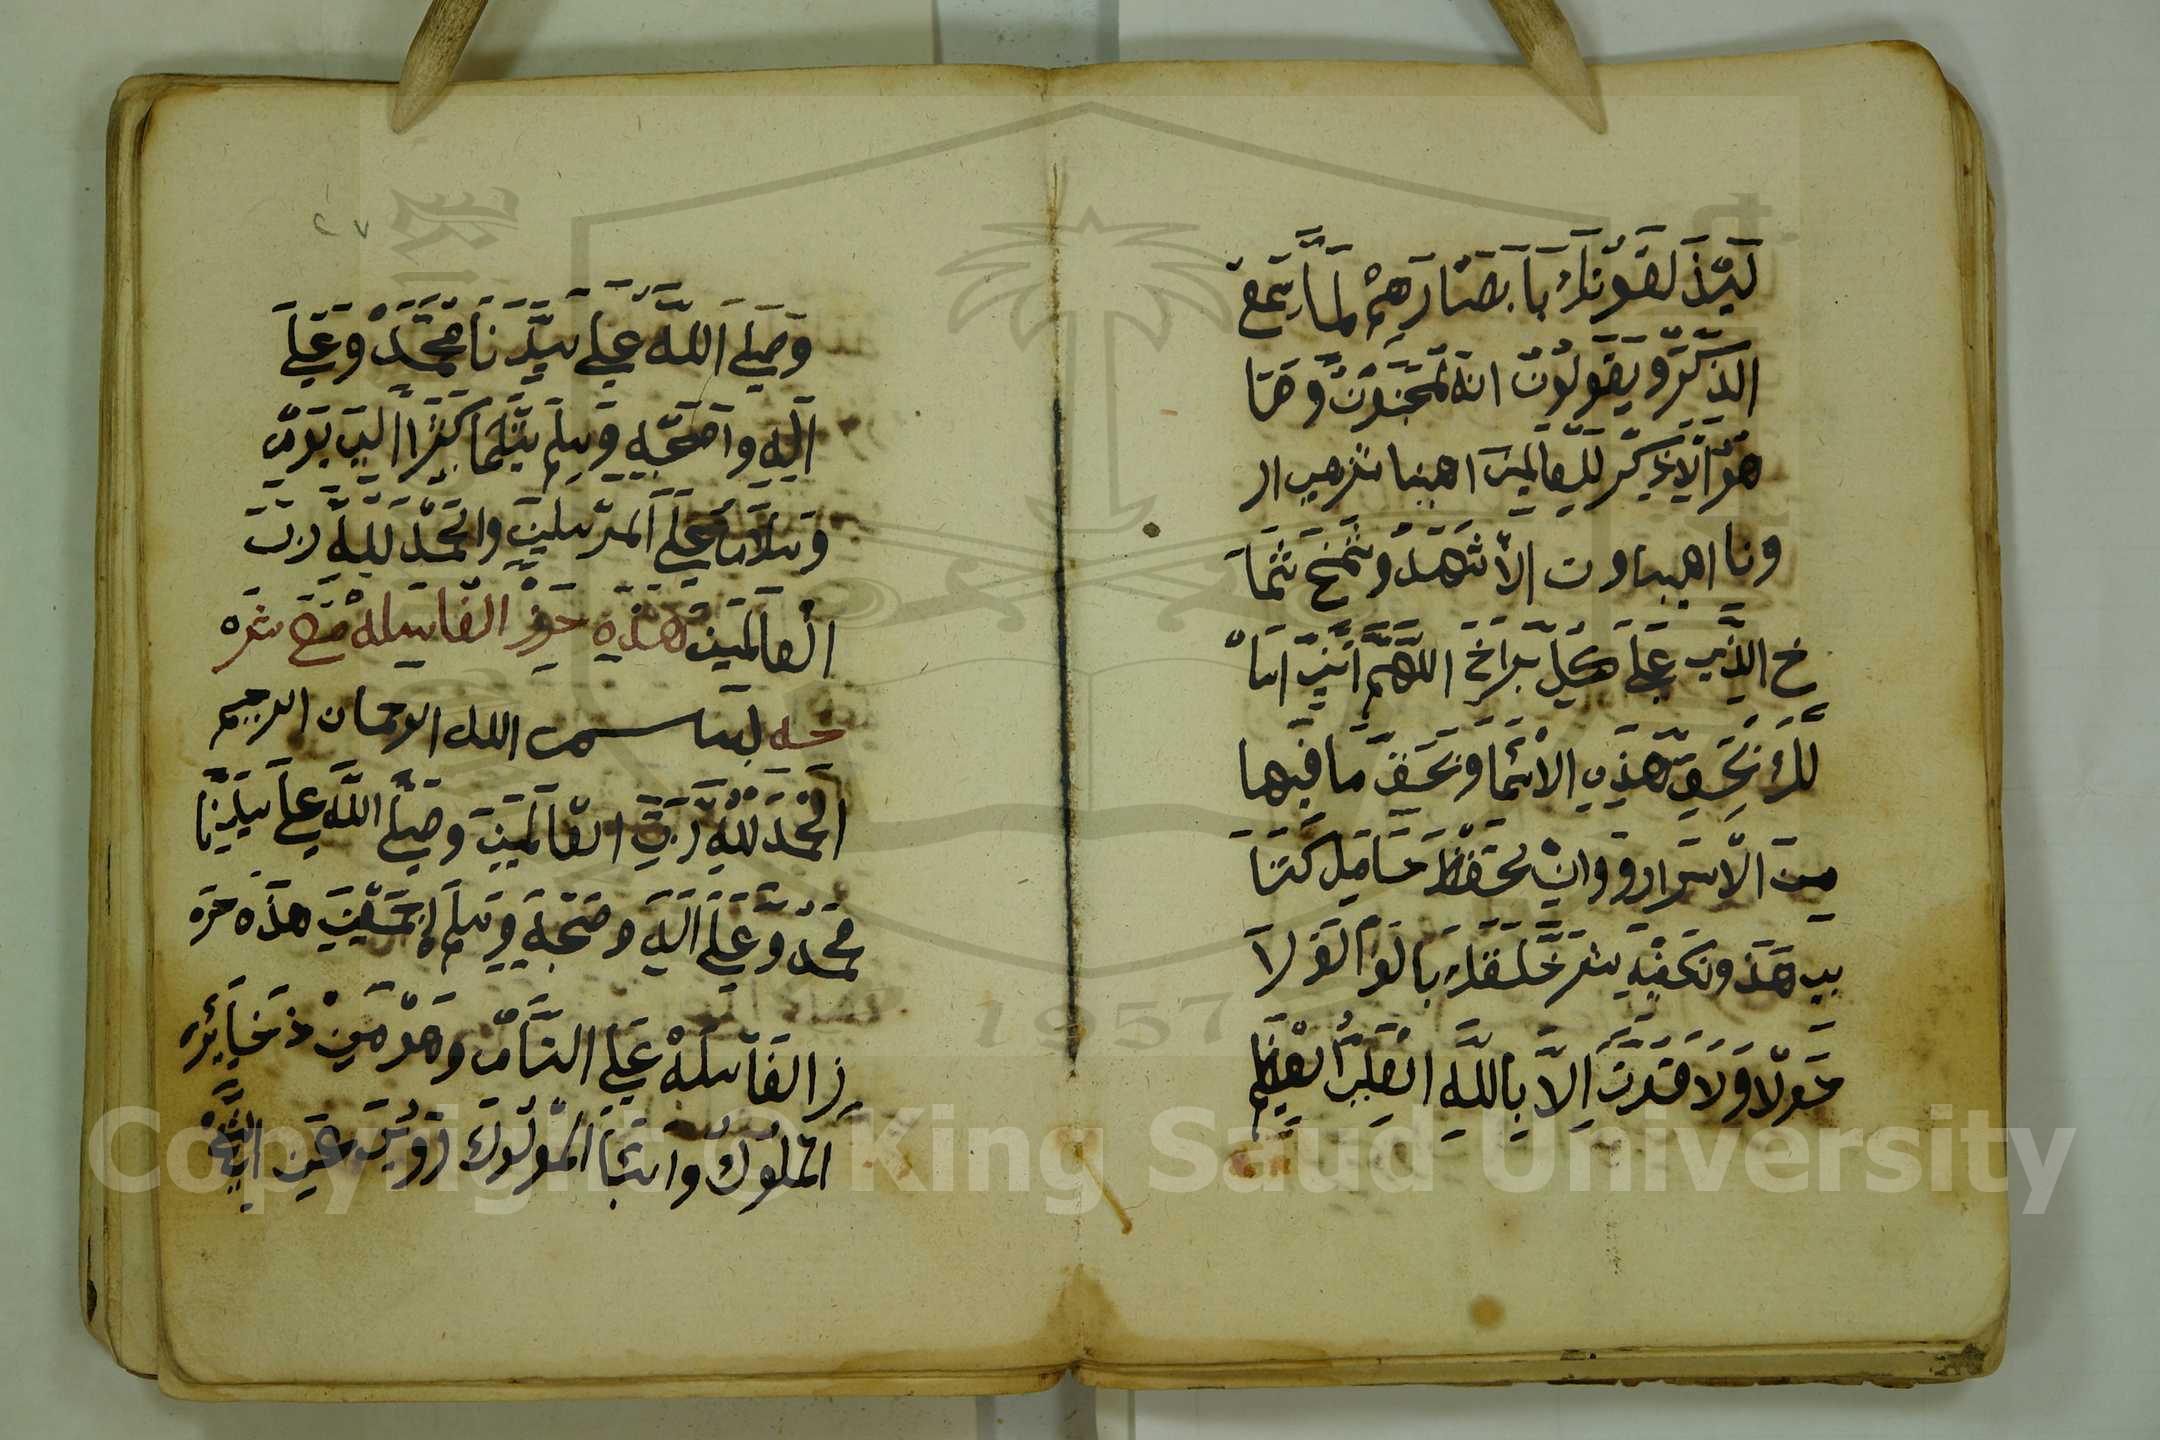 لَيَذَلقَونَكَ بِاَبصَارَهِمْ لَمَا سَمَعَ
الذِكَرَ وَيَقَولُونَ انهَ لمجَنَونٌ وَمَا
هَوَ اَلاَ ذِكِرَ لَلِعالَمِينَ اهيا شرهيا ار
ونا اهيباوت الاَ شَهَدَ وَشَمَخَ شَمَا
خ الذَي عَلَى كَلِ بَرَاخَ اللهَمَ اَنِيَ اسَاْ
لَكَ بَحَقِ هَذِهِ الاَسْمَا وَبَحَقَ مَا فَيِها
مِنَ الاسَرَار وَانْ تحَفَظَ حَامِلَ كَتَا
بي هَذَ وَتَكَفَيهِ شَرَ خَلَقَكَ بَالَفَ الَفَ لاَ
حَولَا وَلاَ قَوَتَ اِلاَ بِاللهِ العَلِيَ العَظِيمِ
٢٧
وَصَلَى اَللهَ عَلَى سَيِدَنَا مَحَمَدْ وَعَلَى
اَلِهِ وَاصَحَبِهِ وَسِلِمَ تَسَلَيمَا كَثَرَا الَى يَومِ
وَسَلاَمَ عَلَى اَلمرَسَلينَ وَالحَمدَ لَلهِ رَبَ
العَالَمَينَ هَذَهِ حَرز الغَاسله مَعَ شره
حه بسم الله الرحمان الرحيم
اَلحَمَدَ للهِ رَبَ العَالَمَينَ وَصَلَى اللهَ عَلَى سَيَدِنَا
مَحَمَدْ وَعَلَى اَلِهِ وَصَحَبِهِ وَسَلِمَ اجمَعَينَ هذَه حر
ز الغَاسلهْ عَلَى التَمَامَ وَهَوْ مَنْ ذخَايِر
الملَوكَ وَاسَبَا الموَلَوكَ رَوَيَ عَنِ النَبِي